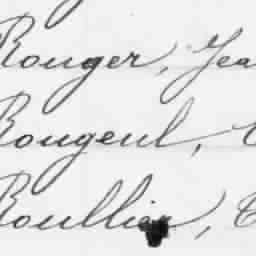 Rouger, Jea
Rougeul,
Roullier, C